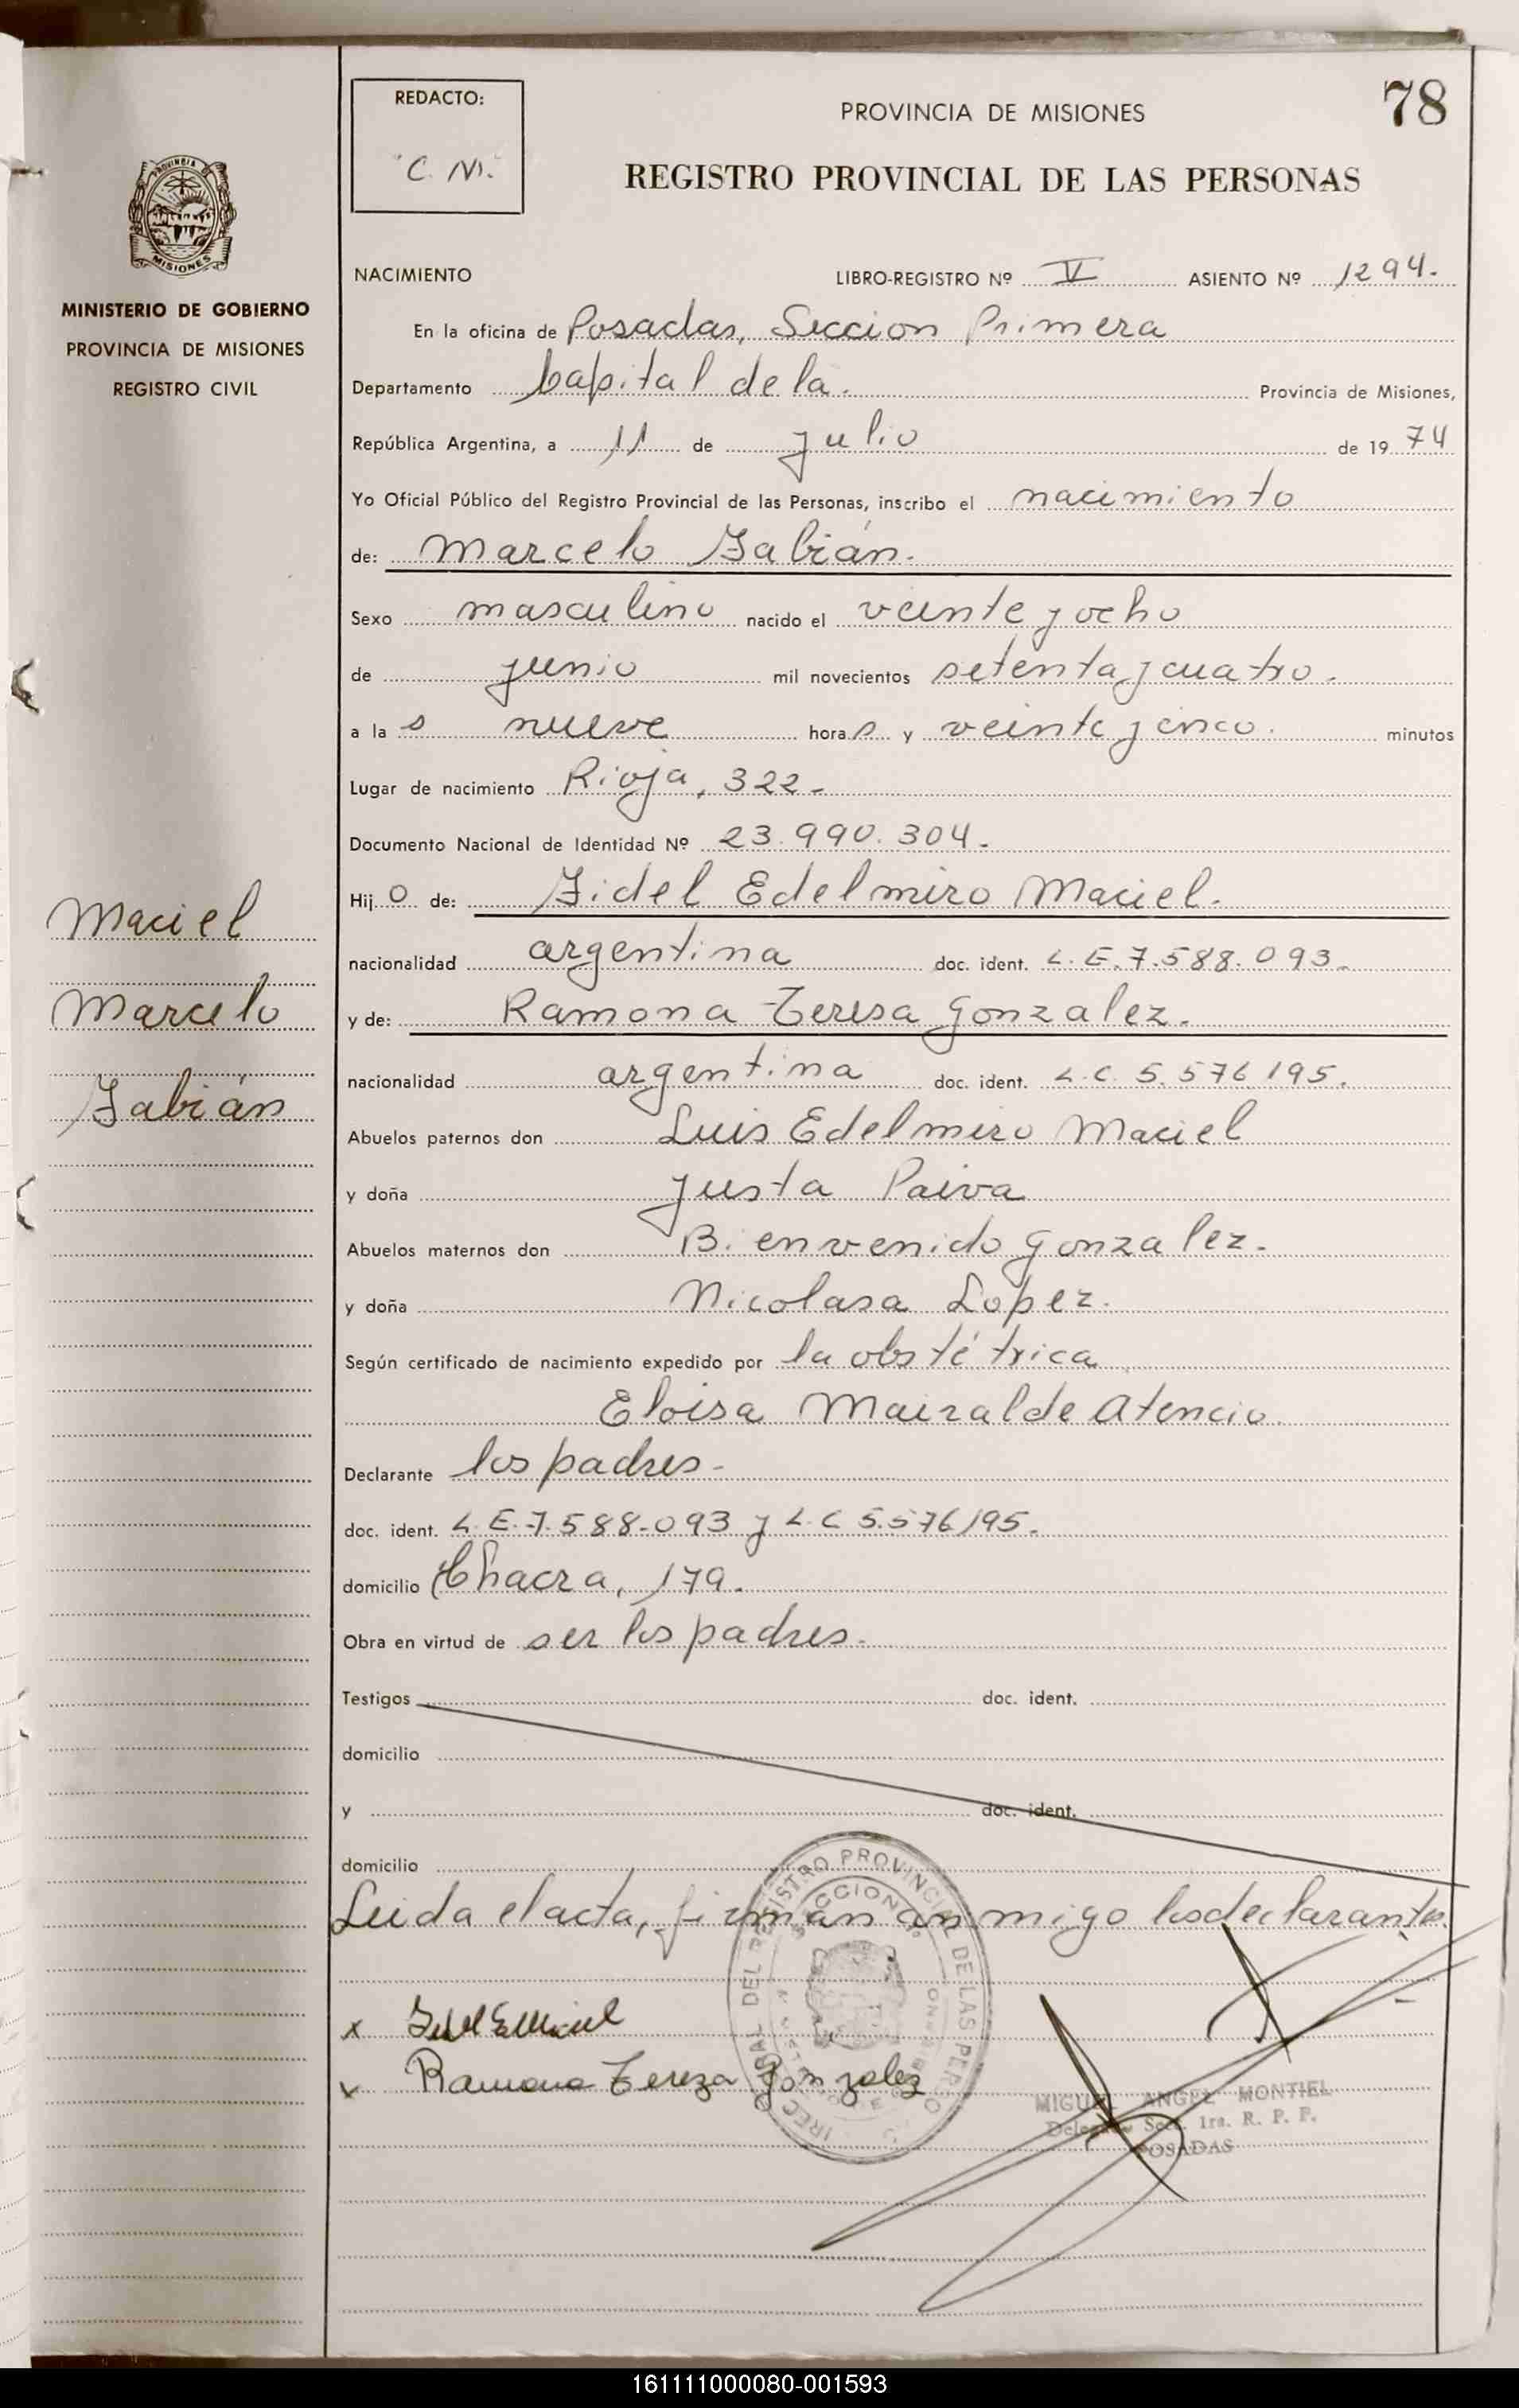 78
REDACTO:
"C. M."
PROVINCIA DE MISIONES
REGISTRO PROVINCIAL DE LAS PERSONAS
PROVINCIA
MISIONES
MINISTERIO DE GOBIERNO
PROVINCIA DE MISIONES
REGISTRO CIVIL
NACIMIENTO LIBRO-REGISTRO Nº V ASIENTO Nº 1294.-
En la oficina de Posadas, Seccion Primera
Departamento Capital de la. Provincia de Misiones,
República Argentina, a 11 de julio de 19 74
Yo Oficial Público del Registro Provincial de las Personas, inscribo el nacimiento
de: Marcelo Fabián.-
Sexo masculino nacido el veinte y ocho
de junio mil novecientos setenta y cuatro.-
a la s nueve hora s y veinte y cinco. minutos
Lugar de nacimiento Rioja, 322.-
Documento Nacional de Identidad Nº 23.990.304.-
Hij o de: Fidel Edelmiro Maciel.-
nacionalidad argentina doc. ident. L.E. 7.588.093.-
y de: Ramona Teresa Gonzalez.-
nacionalidad argentina doc. ident. L.C. 5.576.195.
Abuelos paternos don Luis Edelmiro Maciel
y doña Justa Paiva
Abuelos maternos don Bienvenido Gonzalez.-
y doña Nicolasa Lopez.-
Según certificado de nacimiento expedido por la obstétrica
Eloisa Mairal de Atencio.
Declarante los padres.-
doc. ident. L.E. 7.588.093 y L.C 5.576195.-
domicilio Chacra, 179.-
Obra en virtud de ser los padres.-
Testigos doc. ident.
domicilio
y doc. ident.
domicilio
Maciel
Marcelo
Fabián
Leida el acta, firman conmigo los declarantes.
x
x Ramona Tereza Gonzalez
MIGUEL ANGEL MONTIEL
Delegado Secc. 1ra. R. P. P.
POSADAS
161111000080-001593